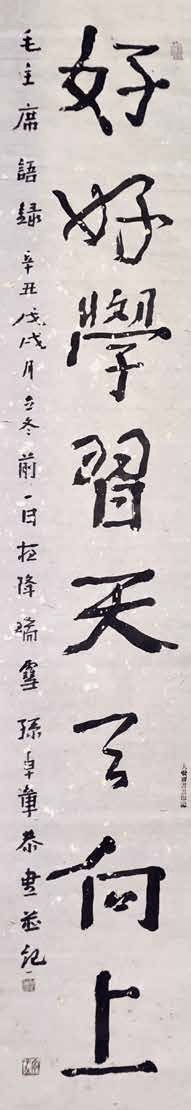 好好學習天天向上
毛主席語録辛丑戊戌月立冬前一日降瑞雪孫卓章恭書并記